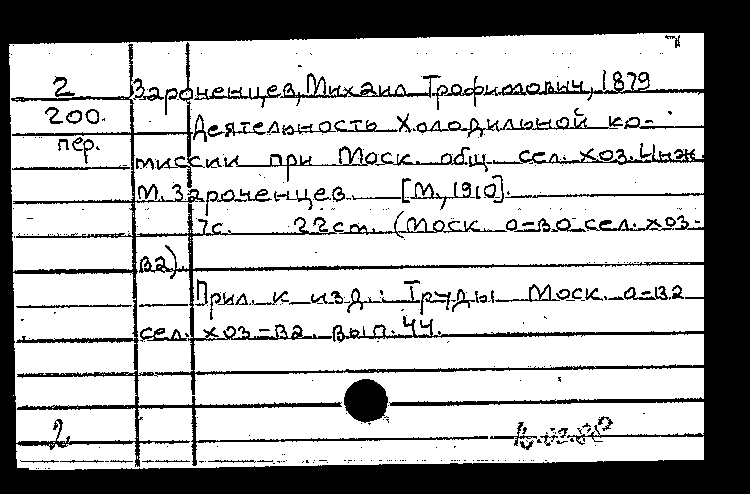 2 Зароненцев, Михаил Трофимович, 1879
200. Деятельность Холодильной ко-
пер. миссии при Моск. общ. сел. хоз. Инж.
М. Зароненцев. [М., 1910].
7с. 22cm. (Моск. о-во сел. хоз-
ва).
Прил. к изд.: Труды Моск. о-ва
сел. хоз-ва. вып. 44.
2